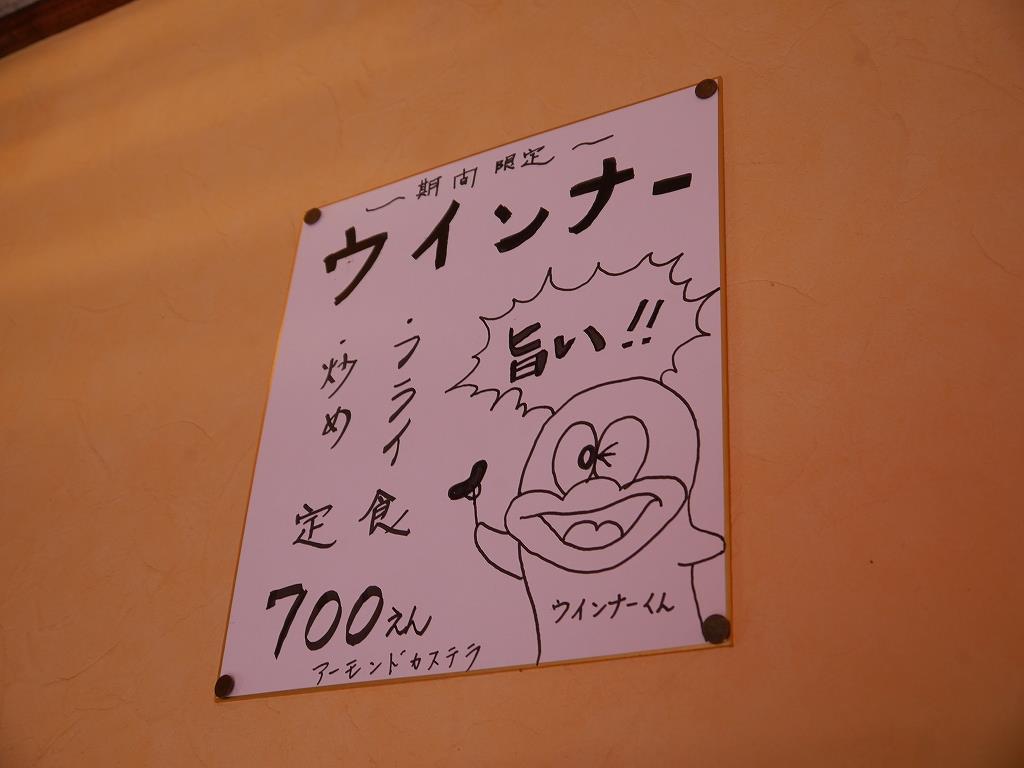 〜期間限定〜
ウインナー
・フライ
・炒め
定食
700えん
アーモンドカステラ
旨い!!
ウインナーくん